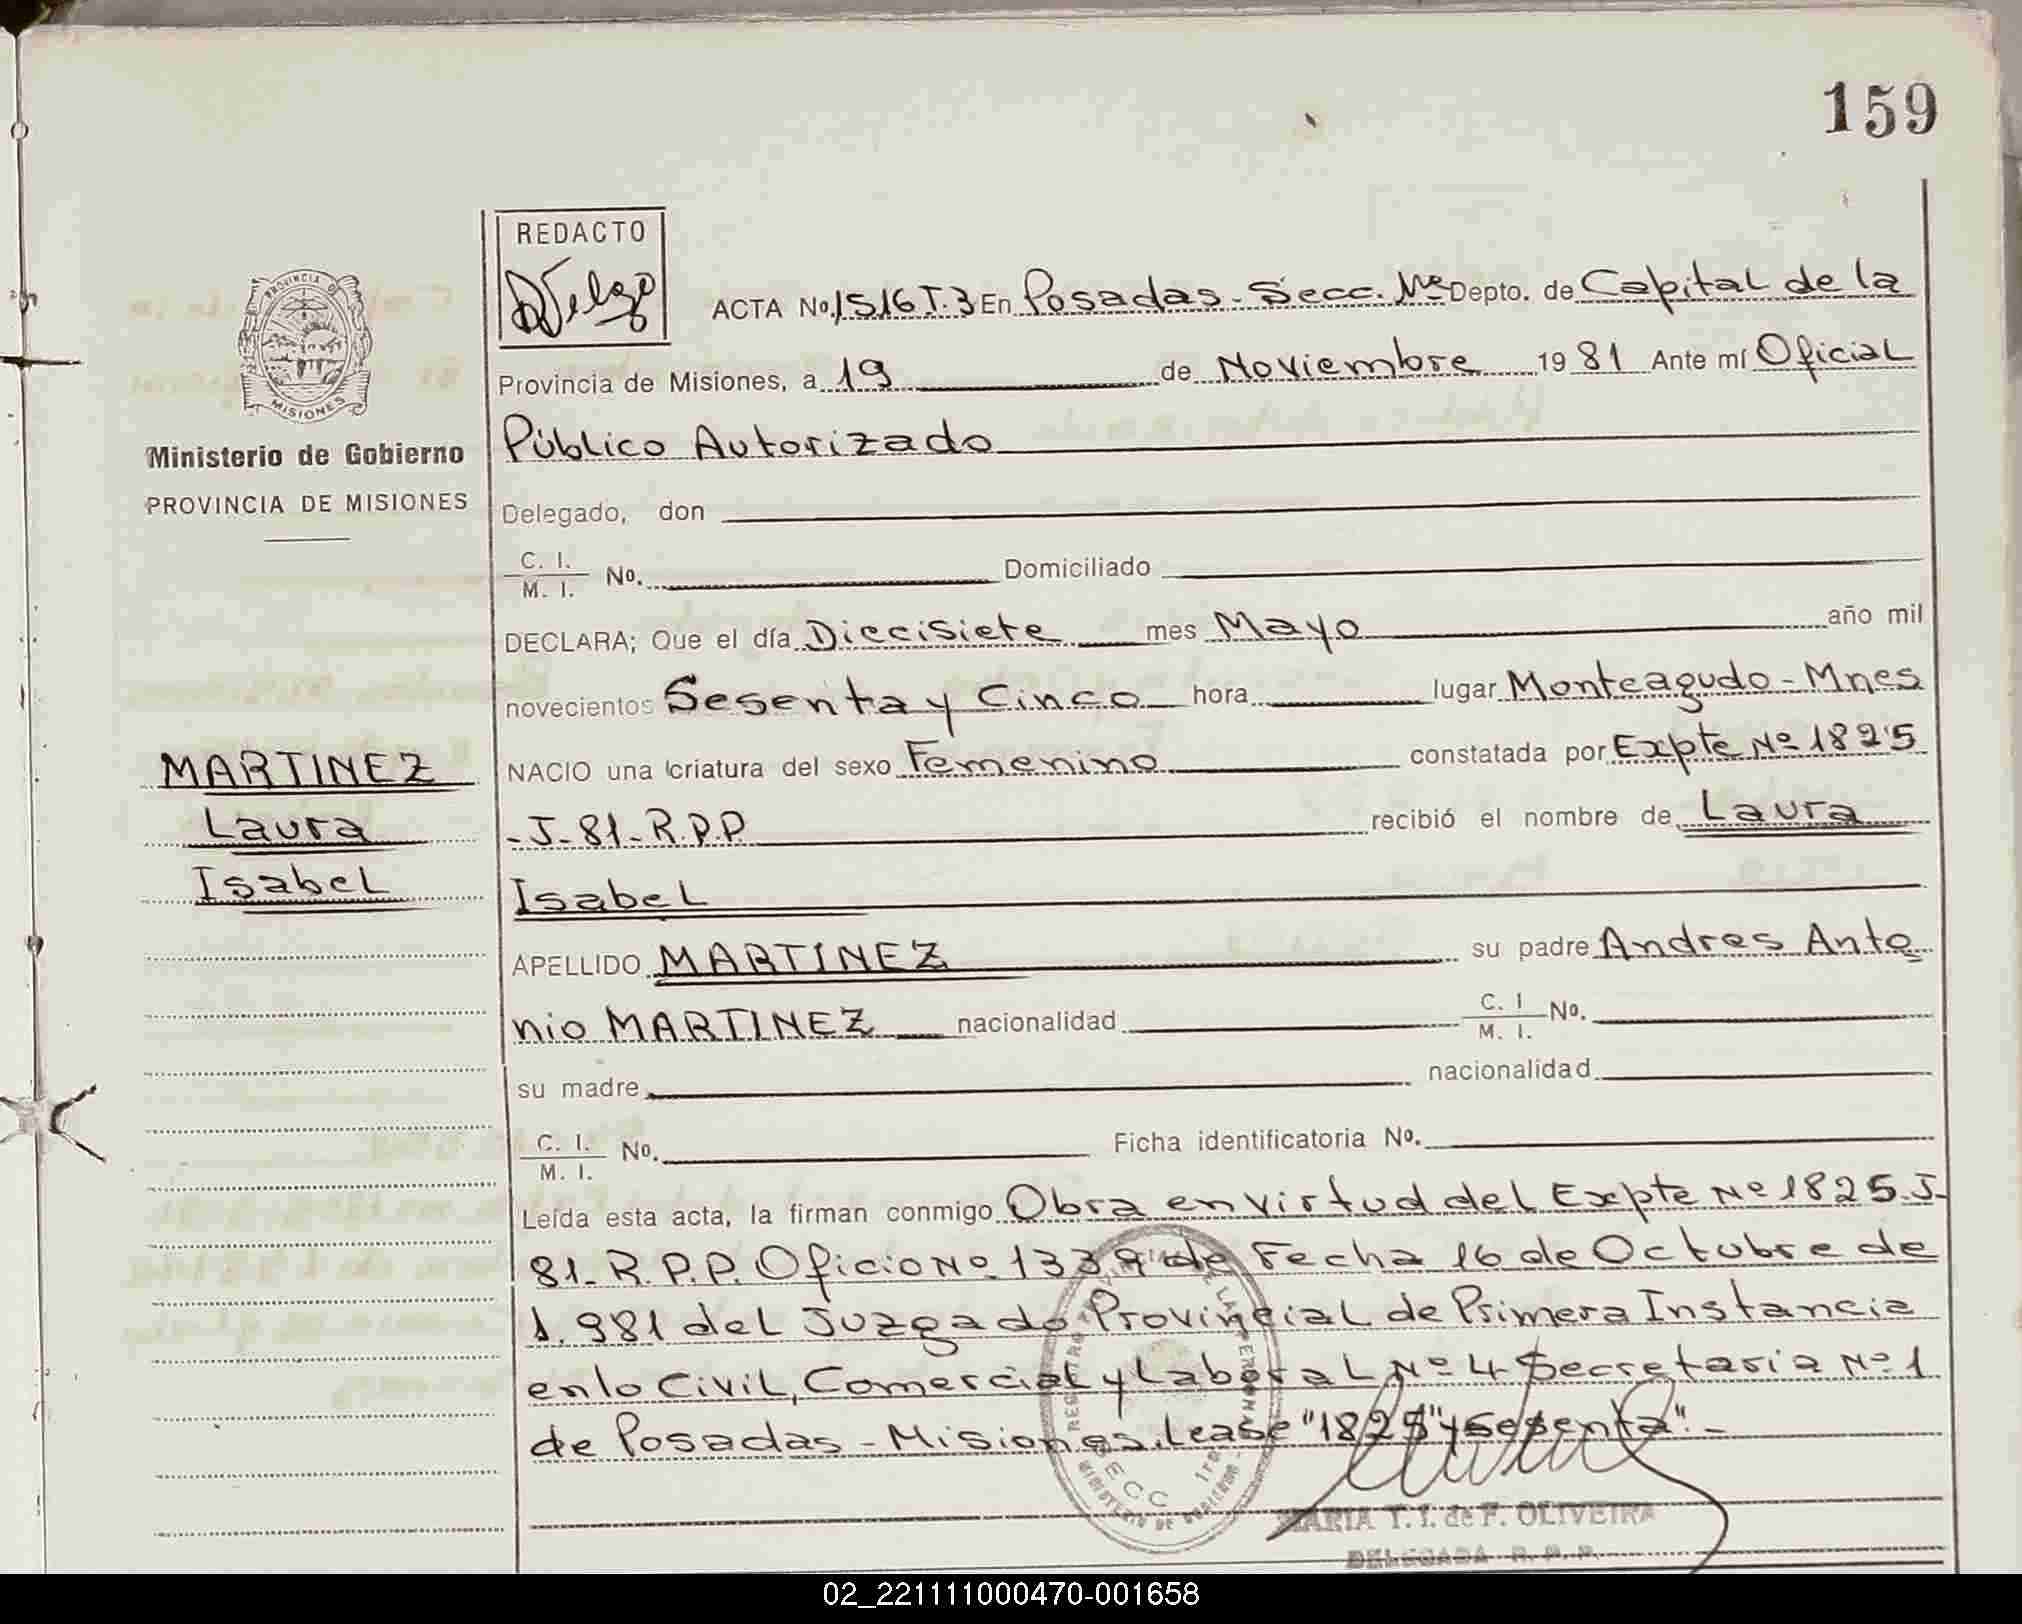 159
REDACTO
PROVINCIA D
MISIONES
Ministerio de Gobierno
PROVINCIA DE MISIONES
ACTA No. 1516 T.3 En Posadas - Secc. 1ra Depto. de Capital de la
Provincia de Misiones, a 19 de Noviembre 1981 Ante mí Oficial
Público Autorizado
Delegado, don
C. I.
M. I. No. Domiciliado
DECLARA; Que el día Diecisiete mes Mayo año mil
novecientos Sesenta y Cinco hora lugar Monteagudo - Mnes
MARTINEZ
NACIO una criatura del sexo Femenino constatada por Expte Nº 1825
Laura
- J - 81 - R.P.P. recibió el nombre de Laura
Isabel
Isabel
APELLIDO MARTINEZ su padre Andres Anto
nio MARTINEZ nacionalidad C. I
M. I. No.
su madre nacionalidad
C. I.
M. I. No. Ficha identificatoria No.
Leída esta acta, la firman conmigo Obra en virtud del Expte Nº 1825. J-
81- R. P. P. Oficio Nº 1339 de Fecha 16 de Octubre de
1.981 del Juzgado Provincial de Primera Instancia
en lo Civil, Comercial y Laboral Nº 4 Secretaria Nº 1
de Posadas - Misiones. Lease "1825" y Sesenta". -
MARIA T. I. de F. OLIVEIRA
DELEGADA R. P. P.
02_221111000470-001658